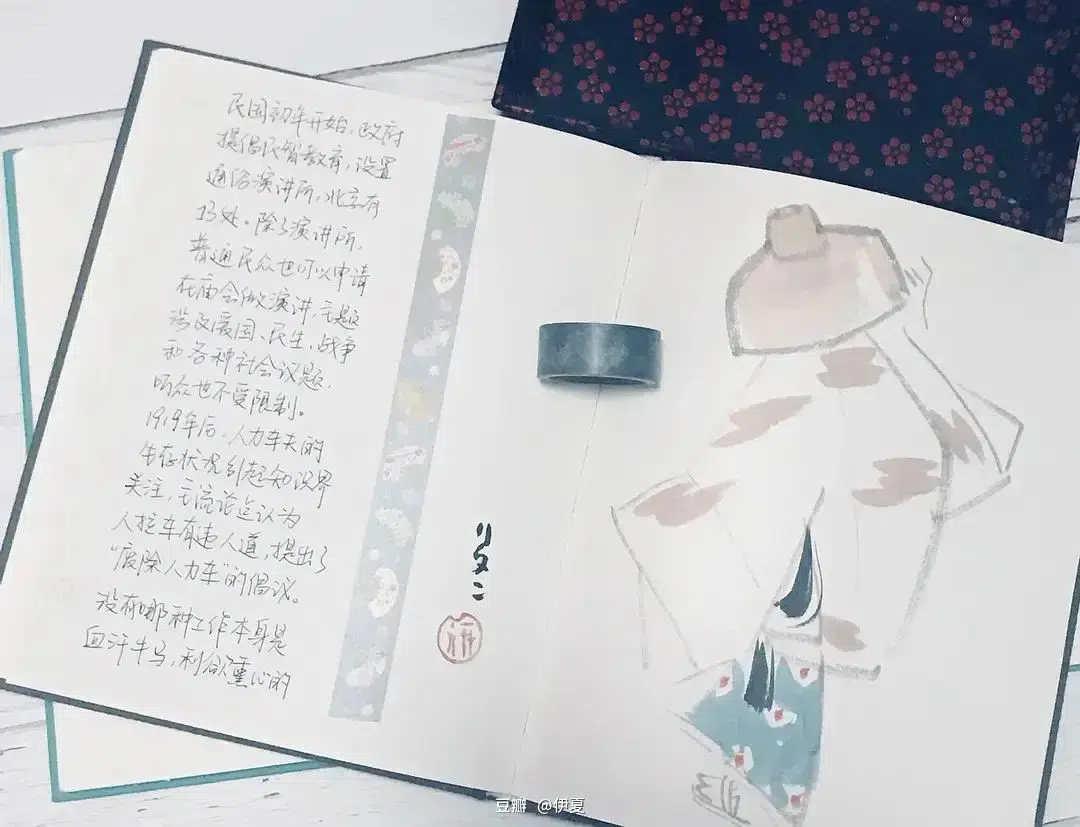 民国初年开始，政府
提倡民智教育，设置
通俗演讲所，北京有
13处。除了演讲所，
普通民众也可以申请
在庙会做演讲，主题
涉及爱国、民生、战争
和各种社会议题，
听众也不受限制。
1919年后，人力车夫的
生存状况引起知识界
关注，主流论点认为
人拉车有违人道，提出了
“废除人力车”的倡议。
没有哪种工作本身是
血汗牛马，利欲熏心的
リタニ
豆瓣 @伊夏